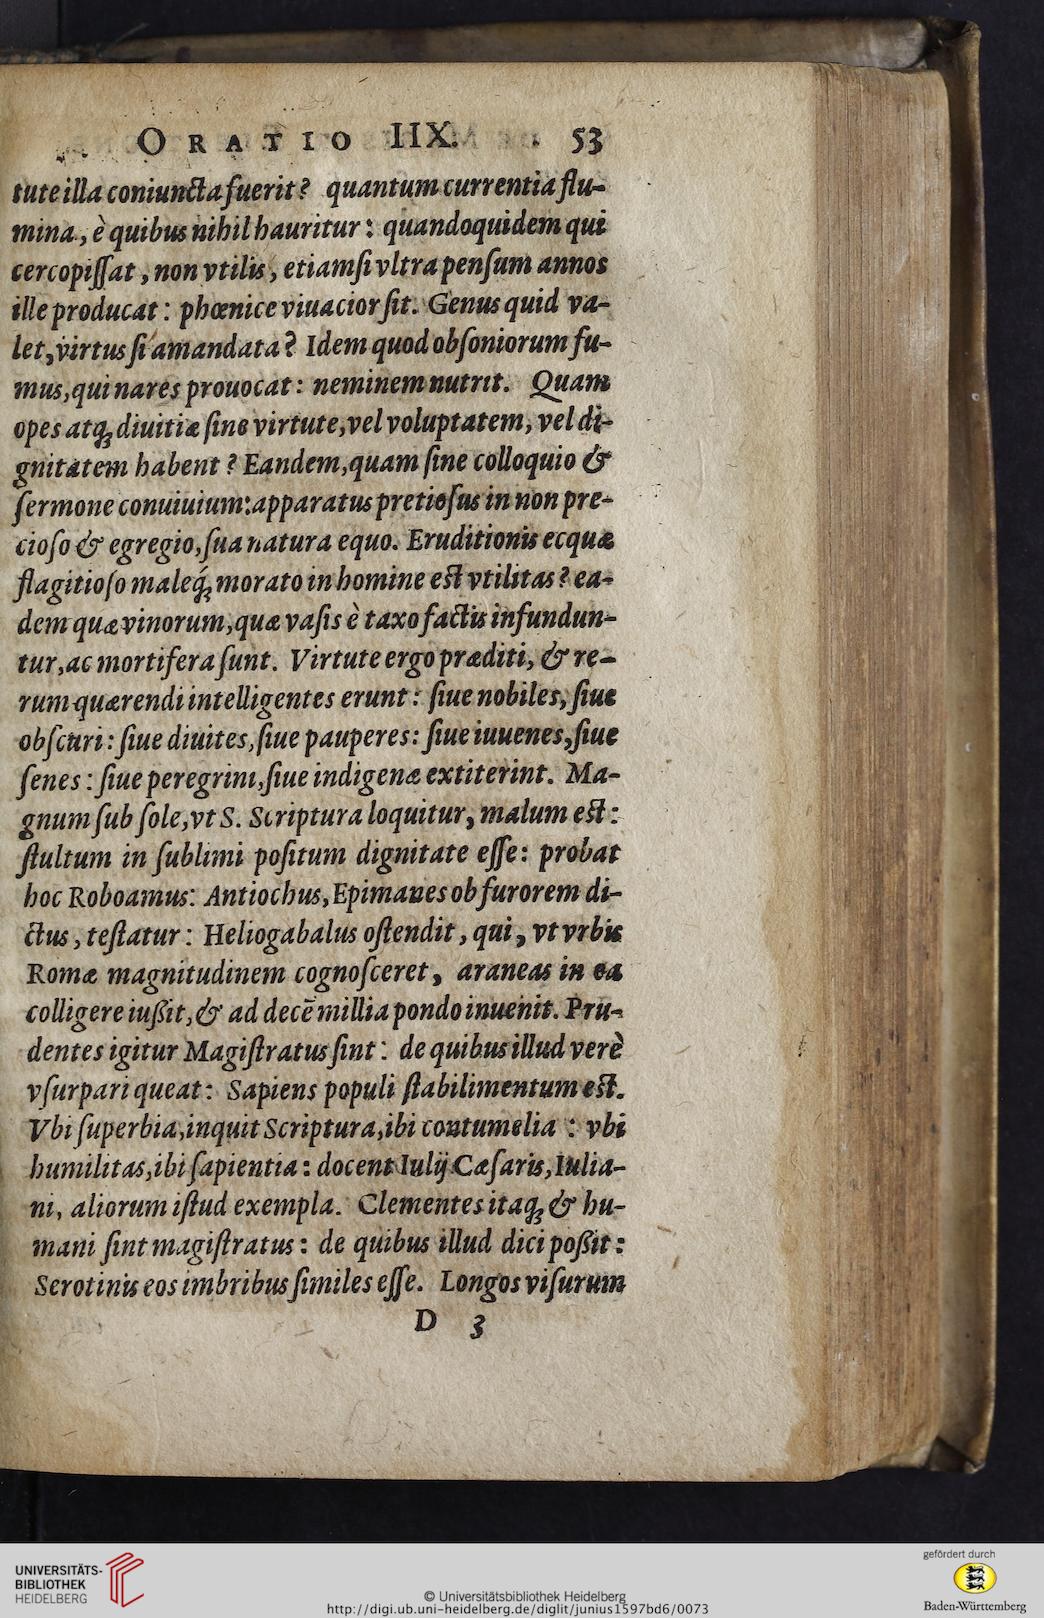 ORATIO IIX. 53
tute illa coniuncta fuerit? quantum currentia flu-
mina, è quibus nihil hauritur: quandoquidem qui
cercopiſſat, non vtilis, etiamſi vltra penſum annos
ille producat: phœnice viuacior ſit. Genus quid va-
let, virtus ſi amandata? Idem quod obſoniorum fu-
mus, qui nares prouocat: neminem nutrit. Quam
opes atq; diuitiæ ſine virtute, vel voluptatem, vel di-
gnitatem habent? Eandem, quam ſine colloquio &
ſermone conuiuium: apparatus pretioſus in non pre-
cioſo & egregio, ſua natura equo. Eruditionis ecquæ
flagitioſo maleq́; morato in homine est vtilitas? ea-
dem quæ vinorum, quæ vaſis è taxo factis infundun-
tur, ac mortifera ſunt. Virtute ergo præditi, & re-
rum quærendi intelligentes erunt: ſiue nobiles, ſiue
obſcuri: ſiue diuites, ſiue pauperes: ſiue iuuenes, ſiue
ſenes: ſiue peregrini, ſiue indigenæ extiterint. Ma-
gnum ſub ſole, vt S. Scriptura loquitur, malum est:
ſtultum in ſublimi poſitum dignitate eſſe: probat
hoc Roboamus: Antiochus, Epimanes ob furorem di-
ctus, teſtatur: Heliogabalus oſtendit, qui, vt vrbis
Romæ magnitudinem cognoſceret, araneas in ea
colligere iußit, & ad decē millia pondo inuenit. Pru-
dentes igitur Magiſtratus ſint: de quibus illud verè
vſurpari queat: Sapiens populi ſtabilimentum est.
Vbi ſuperbia, inquit Scriptura, ibi contumelia: vbi
humilitas, ibi ſapientia: docent Iulij Cæſaris, Iulia-
ni, aliorum iſtud exempla. Clementes itaq; & hu-
mani ſint magiſtratus: de quibus illud dici poßit:
Serotinis eos imbribus ſimiles eſſe. Longos viſurum
D 3
UNIVERSITÄTS-
BIBLIOTHEK
HEIDELBERG
© Universitätsbibliothek Heidelberg
http://digi.ub.uni-heidelberg.de/diglit/junius1597bd6/0073
gefördert durch
Baden-Württemberg